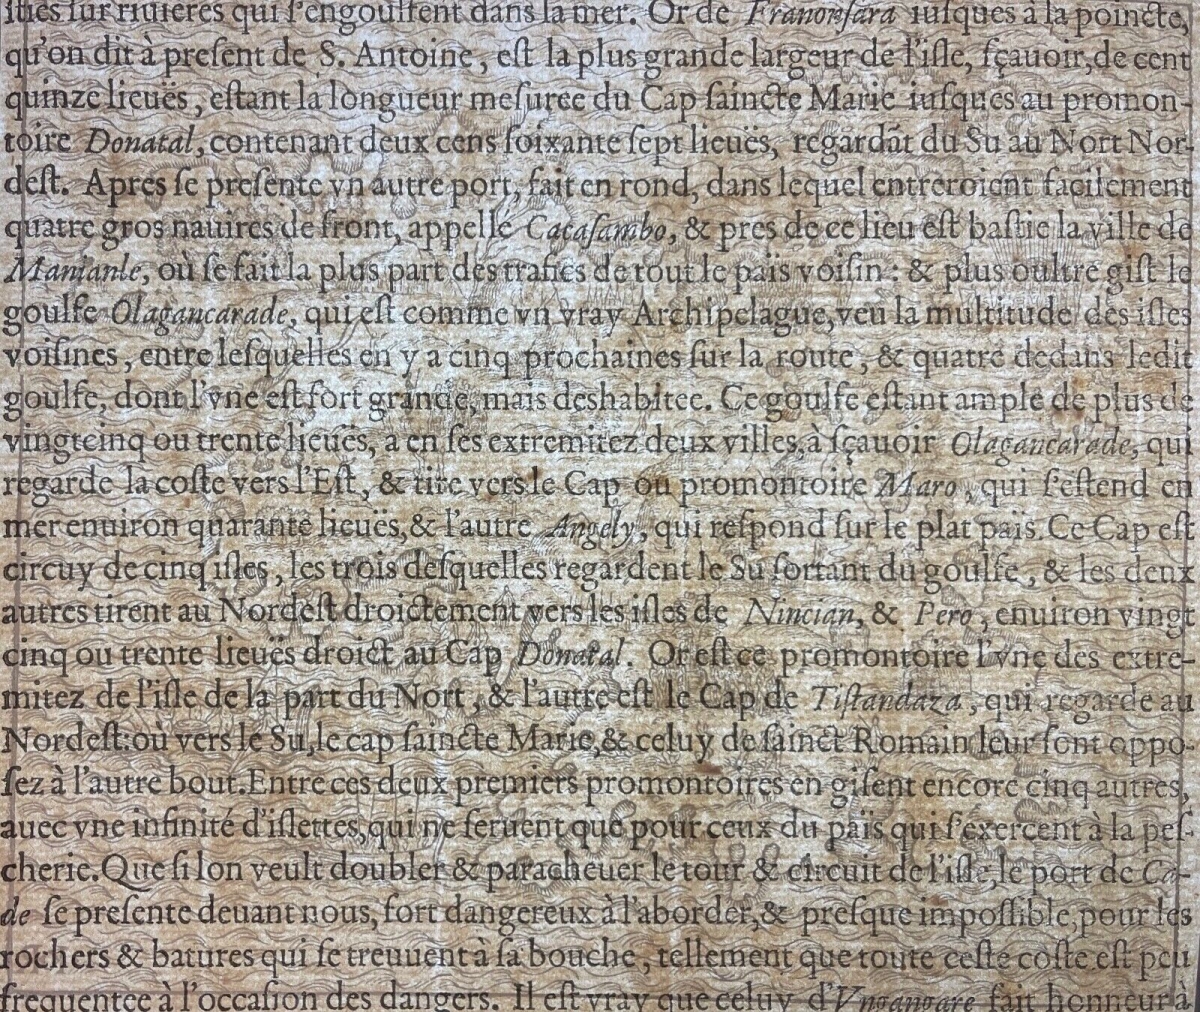 sur riuieres qui s'engoulfent dans la mer. Or de Franonsara iusques à la poincte,
qu'on dit à present de S. Antoine, est la plus grande largeur de l'isle, sçauoir, de cent
quinze lieuës, estant la longueur mesuree du Cap saincte Marie iusques au promon-
toire Donatal, contenant deux cens soixante sept lieuës, regardãt du Su au Nort Nor-
dest. Apres se presente vn autre port, fait en rond, dans lequel entreroient facilement
quatre gros nauires de front, appellé Cacasambo, & pres de ce lieu est bastie la ville de
Manianle, où se fait la plus part des trafics de tout le païs voisin: & plus oultre gist le
goulfe Olagancarade, qui est comme vn vray Archipelague, veu la multitude des isles
voisines, entre lesquelles en y a cinq prochaines sur la route, & quatre dedans ledit
goulfe, dont l'vne est fort grande, mais deshabitee. Ce goulfe estant ample de plus de
vingtcinq ou trente lieuës, a en ses extremitez deux villes, à sçauoir Olagancarade, qui
regarde la coste vers l'Est, & tire vers le Cap ou promontoire Maro, qui s'estend en
mer enuiron quarante lieuës, & l'autre Angely, qui respond sur le plat païs. Ce Cap est
circuy de cinq isles, les trois desquelles regardent le Su sortant du goulfe, & les deux
autres tirent au Nordest droictement vers les isles de Nincian, & Pero, enuiron vingt
cinq ou trente lieuës droict au Cap Donatal. Or est ce promontoire l'vne des extre-
mitez de l'isle de la part du Nort, & l'autre est le Cap de Tistandaza, qui regarde au
Nordest: où vers le Su, le cap saincte Marie, & celuy de sainct Romain leur sont oppo-
sez à l'autre bout. Entre ces deux premiers promontoires en gisent encore cinq autres,
auec vne infinité d'islettes, qui ne seruent que pour ceux du païs qui s'exercent à la pes-
cherie. Que si lon veult doubler & paracheuer le tour & circuit de l'isle, le port de Ca-
de se presente deuant nous, fort dangereux à l'aborder, & presque impossible, pour les
rochers & batures qui se treuuent à sa bouche, tellement que toute ceste coste est peu
frequentee à l'occasion des dangers. Il est vray que celuy d'Vngangare fait honneur à